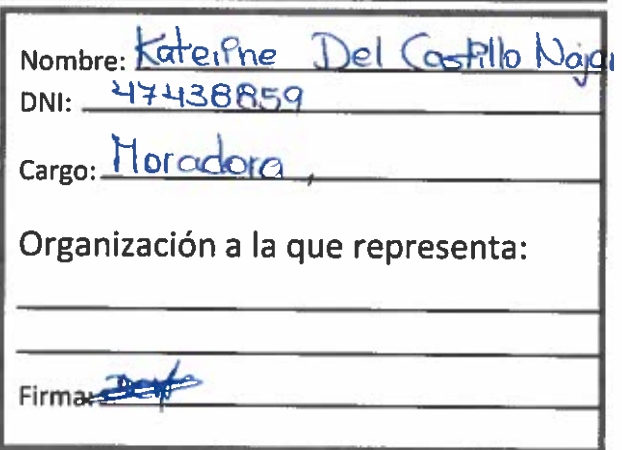 Nombre: Kateirne Del Castillo Najar
DNI: 47438859
Cargo: Moradora,
Organización a la que representa:
Firma: